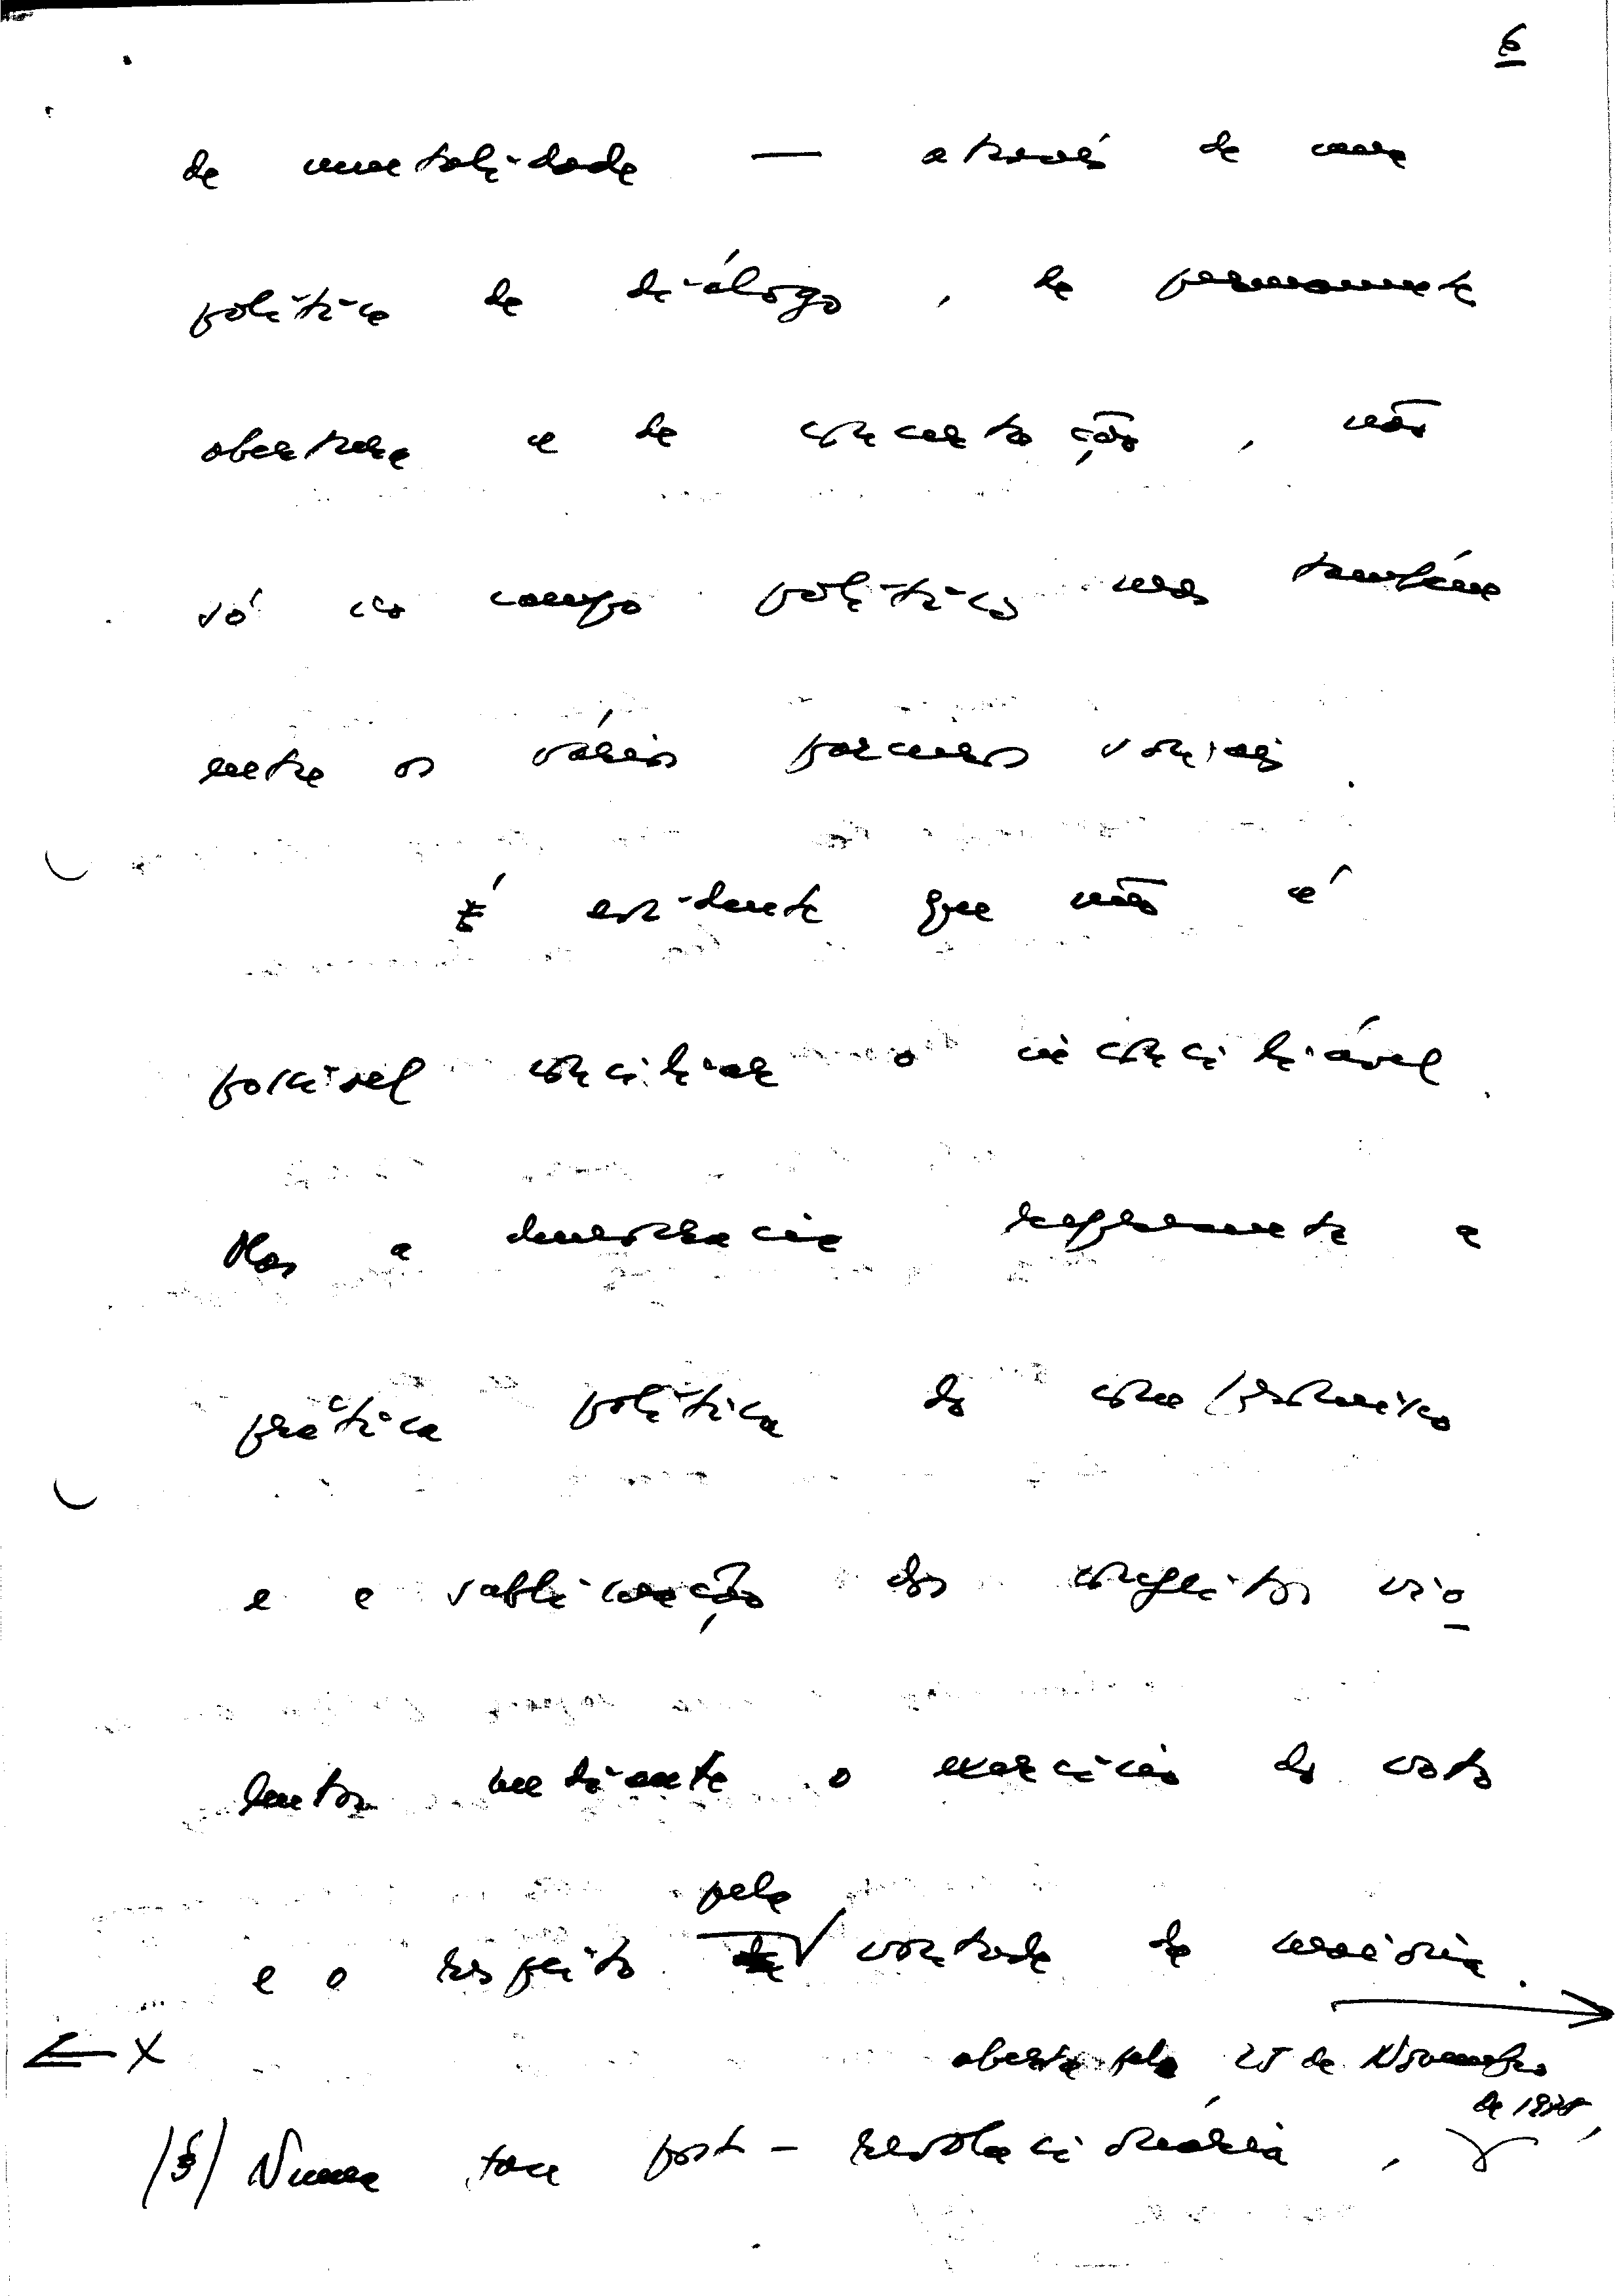 6
de mentalidade — através de uma
política de diálogo, de permanente
abertura e de concertação, não
só no campo político mas também
entre os vários parceiros sociais.
É evidente que não é
possível conciliar o inconciliável.
Mas a democracia representa a
prática política do compromisso
e a sublimação dos conflitos vio
lentos mediante o exercício do voto
pela
e o respeito de vontade da maioria.
X aberta pelo 25 de Novembro
de 1975,
(§) Numa fase post-revolucionária,